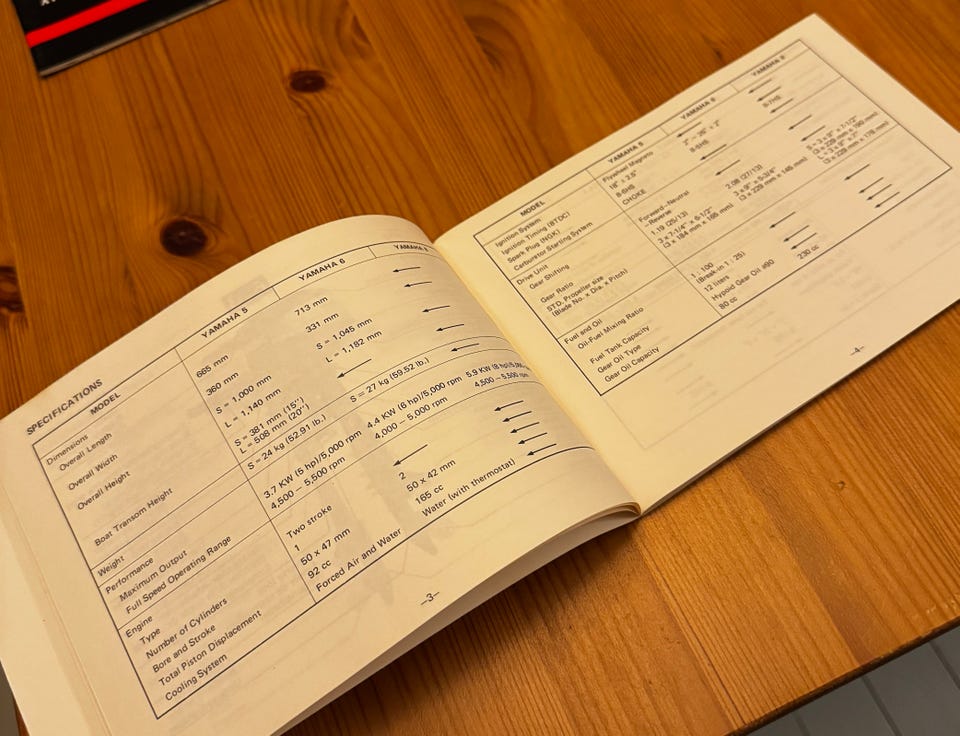 SPECIFICATIONS
MODEL YAMAHA 5 YAMAHA 6 YAMAHA 8
Dimensions
Overall Length 665 mm 713 mm ←
Overall Width 360 mm 331 mm ←
Overall Height S = 1,000 mm S = 1,045 mm ←
L = 1,140 mm L = 1,182 mm
Boat Transom Height S = 381 mm (15") ← ←
L = 508 mm (20")
Weight S = 24 kg (52.91 lb.) S = 27 kg (59.52 lb.) ←
Performance
Maximum Output 3.7 KW (5 hp)/5,000 rpm 4.4 KW (6 hp)/5,000 rpm 5.9 KW (8 hp)/5,
Full Speed Operating Range 4,500 – 5,500 rpm 4,000 – 5,000 rpm 4,500 – 5,500 rpm
Engine
Type Two stroke ← ←
Number of Cylinders 1 2 ←
Bore and Stroke 50 x 47 mm 50 x 42 mm ←
Total Piston Displacement 92 cc 165 cc ←
Cooling System Forced Air and Water Water (with thermostat) ←
–3–
MODEL YAMAHA 5 YAMAHA 6 YAMAHA 8
Ignition System Flywheel Magneto ← ←
Ignition Timing (BTDC) 18° ± 2.5° 2° – 26° ± 2° ←
Spark Plug (NGK) B-6HS B-6HS B-7HS
Carburetor Starting System CHOKE ← ←
Drive Unit
Gear Shifting Forward–Neutral ← ←
–Reverse
Gear Ratio 1.19 (25/13) 2.08 (27/13) ←
STD. Propeller size 3 x 7-1/4" x 6-1/2" 3 x 9" x 5-3/4" S = 3 x 9" x 7-1/2"
(Blade No. x Dia. x Pitch) (3 x 184 mm x 165 mm) (3 x 229 mm x 145 mm) (3 x 229 mm x 190 mm)
L = 3 x 9" x 7"
(3 x 229 mm x 178 mm)
Fuel and Oil
Oil-Fuel Mixing Ratio 1 : 100 ← ←
(Break-in 1 : 25)
Fuel Tank Capacity 12 liters ← ←
Gear Oil Type Hypoid Gear Oil #90 ← ←
Gear Oil Capacity 80 cc 230 cc ←
–4–